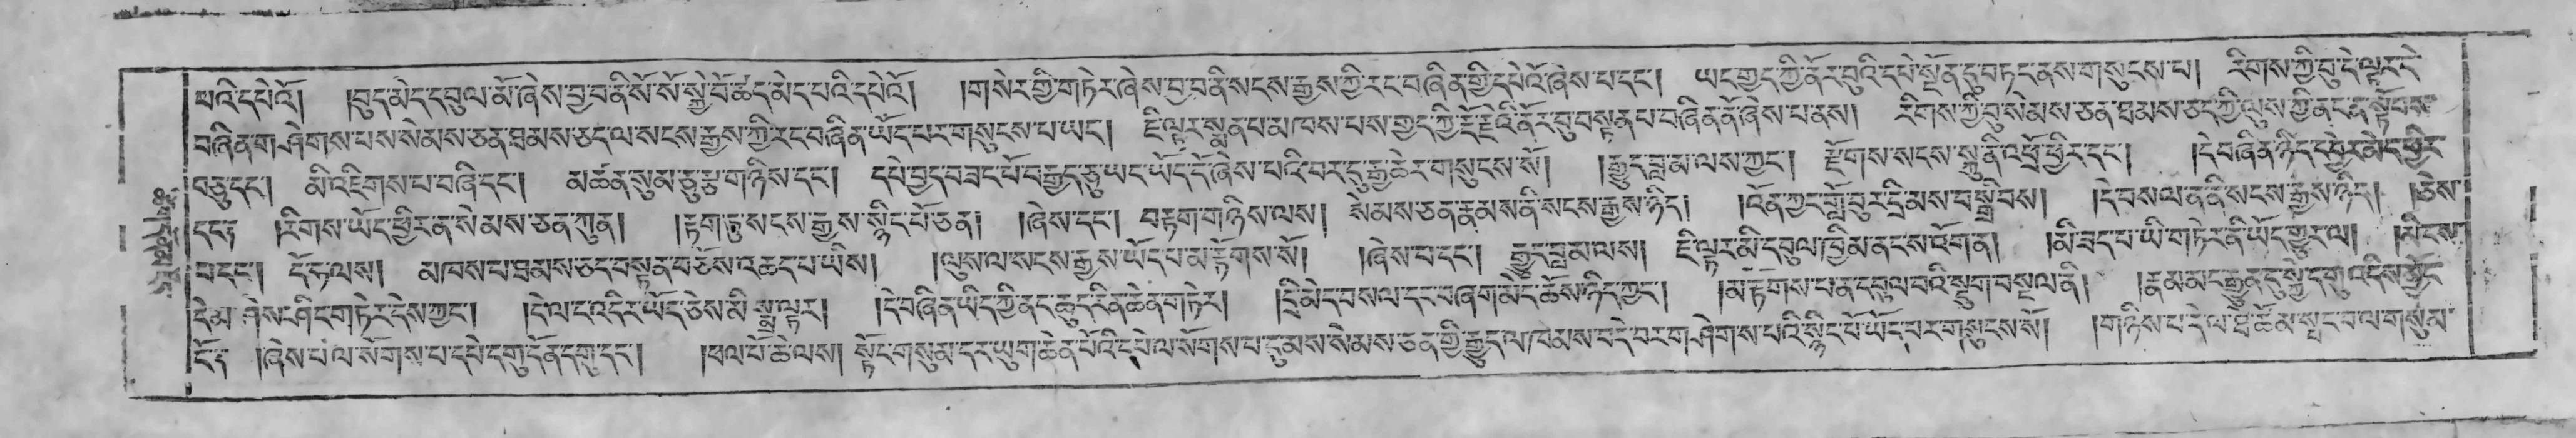 པའི་དཔེའོ། །བུད་མེད་དབུལ་མོ་ཞེས་བྱ་བ་ནི་སོ་སོ་སྐྱེ་བོ་ཚད་མེད་པའི་དཔེའོ། །གསེར་གྱི་གཏེར་ཞེས་བྱ་བ་ནི་སངས་རྒྱས་ཀྱི་རང་བཞིན་གྱི་དཔེའོ་ཞེས་པ་དང་། ཡང་གྱད་ཀྱི་ནོར་བུའི་དཔེ་སྔོན་དུ་བཏང་ནས་གསུངས་པ། རིགས་ཀྱི་བུ་དེ་ལྟར་དེ་
བཞིན་གཤེགས་པས་སེམས་ཅན་ཐམས་ཅད་ལ་སངས་རྒྱས་ཀྱི་རང་བཞིན་ཡོད་པར་གསུངས་པ་ཡང་། ཇི་ལྟར་སྨན་པ་མཁས་པས་གྱད་ཀྱི་རྡོ་རྗེའི་ནོར་བུ་བསྟན་པ་བཞིན་ནོ་ཞེས་པ་ནས། རིགས་ཀྱི་བུ་སེམས་ཅན་ཐམས་ཅད་ཀྱི་ལུས་ཀྱི་ནང་ན་སྟོབས་
བཅུ་དང་། མི་འཇིགས་པ་བཞི་དང་། མཚན་སུམ་ཅུ་རྩ་གཉིས་དང་། དཔེ་བྱད་བཟང་པོ་བརྒྱད་ཅུ་ཡང་ཡོད་དོ་ཞེས་པའི་བར་དུ་རྒྱ་ཆེར་གསུངས་སོ། །རྒྱུད་བླ་མ་ལས་ཀྱང་། རྫོགས་སངས་སྐུ་ནི་འཕྲོ་ཕྱིར་དང་། །དེ་བཞིན་ཉིད་དབྱེར་མེད་ཕྱིར་
དང་། །རིགས་ཡོད་ཕྱིར་ན་སེམས་ཅན་ཀུན། །རྟག་ཏུ་སངས་རྒྱས་སྙིང་པོ་ཅན། །ཞེས་དང་། བརྟག་གཉིས་ལས། སེམས་ཅན་རྣམས་ནི་སངས་རྒྱས་ཉིད། །འོན་ཀྱང་གློ་བུར་དྲི་མས་བསྒྲིབས། །དེ་བསལ་ན་ནི་སངས་རྒྱས་ཉིད། །ཅེས་
པ་དང་། དོ་ཧ་ལས། མཁས་པ་ཐམས་ཅད་བསྟན་བཅོས་འཆད་པ་ཡིས། །ལུས་ལ་སངས་རྒྱས་ཡོད་པ་མ་རྟོགས་སོ། །ཞེས་པ་དང་། རྒྱུད་བླ་མ་ལས། ཇི་ལྟར་མི་དབུལ་ཁྱིམ་ནང་ས་འོག་ན། །མི་ཟད་པ་ཡི་གཏེར་ནི་ཡོད་གྱུར་ལ། །མི་དེས་
དེ་མ་ཤེས་ཤིང་གཏེར་དེས་ཀྱང་། །དེ་ལ་ང་འདིར་ཡོད་ཅེས་མི་སྨྲ་ལྟར། །དེ་བཞིན་ཡིད་ཀྱི་ནང་ཆུད་རིན་ཆེན་གཏེར། །དྲི་མེད་བསལ་དང་བཞག་མེད་ཆོས་ཉིད་ཀྱང་། །མ་རྟོགས་པ་ན་དབུལ་བའི་སྡུག་བསྔལ་ནི། །རྣམ་མང་རྒྱུན་དུ་སྐྱེ་དགུ་འདིས་མྱོང་
ངོ་། །ཞེས་པ་ལ་སོགས་པ་དཔེ་དགུ་དོན་དགུ་དང་། །ཕལ་པོ་ཆེ་ལས། སྟོང་གསུམ་དར་ཡུག་ཆེན་པོའི་དཔེ་ལ་སོགས་པ་དུ་མས་སེམས་ཅན་གྱི་རྒྱུད་ལ་ཁམས་བདེ་བར་གཤེགས་པའི་སྙིང་པོ་ཡོད་པར་གསུངས་སོ། །གཉིས་པ་དེ་ལ་ཐེ་ཚོམ་སྤང་བ་ལ་གསུམ་